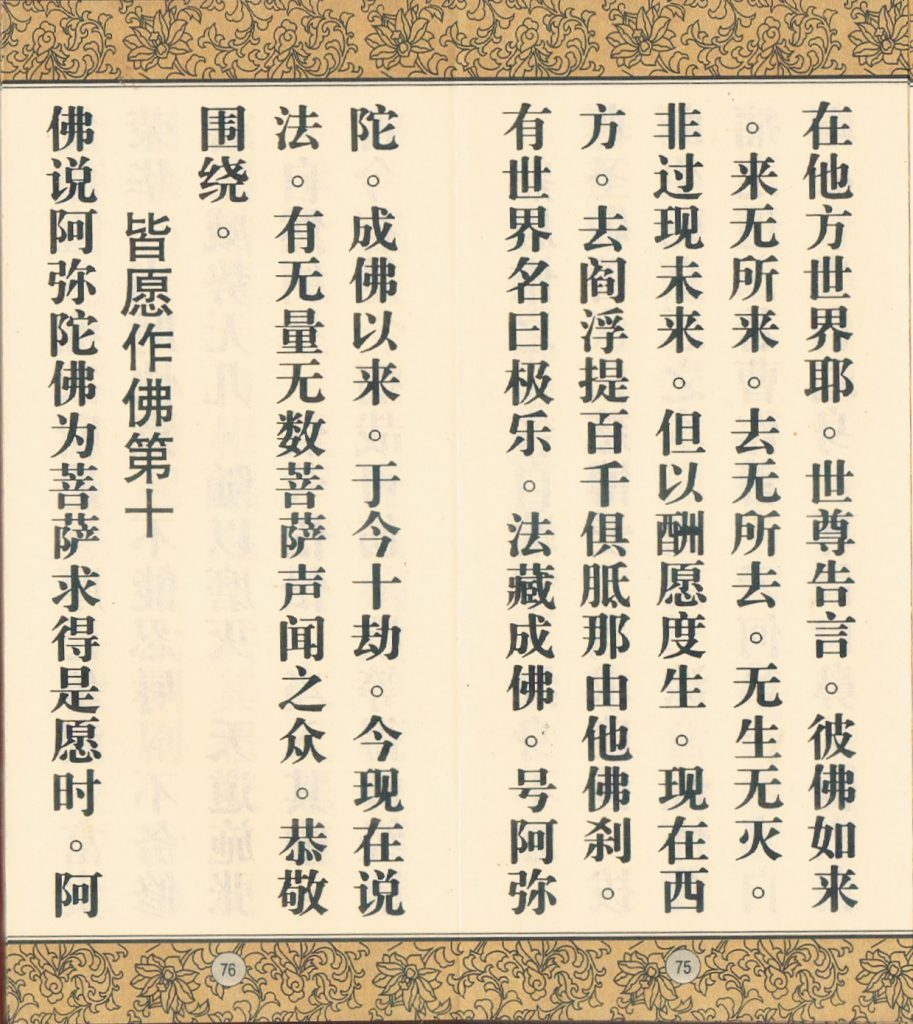 在他方世界耶。世尊告言。彼佛如来
。来无所来。去无所去。无生无灭。
非过现未来。但以酬愿度生。现在西
方。去阎浮提百千俱胝那由他佛刹。
有世界名曰极乐。法藏成佛。号阿弥
陀。成佛以来。于今十劫。今现在说
法。有无量无数菩萨声闻之众。恭敬
围绕。
皆愿作佛第十
佛说阿弥陀佛为菩萨求得是愿时。阿
75
76